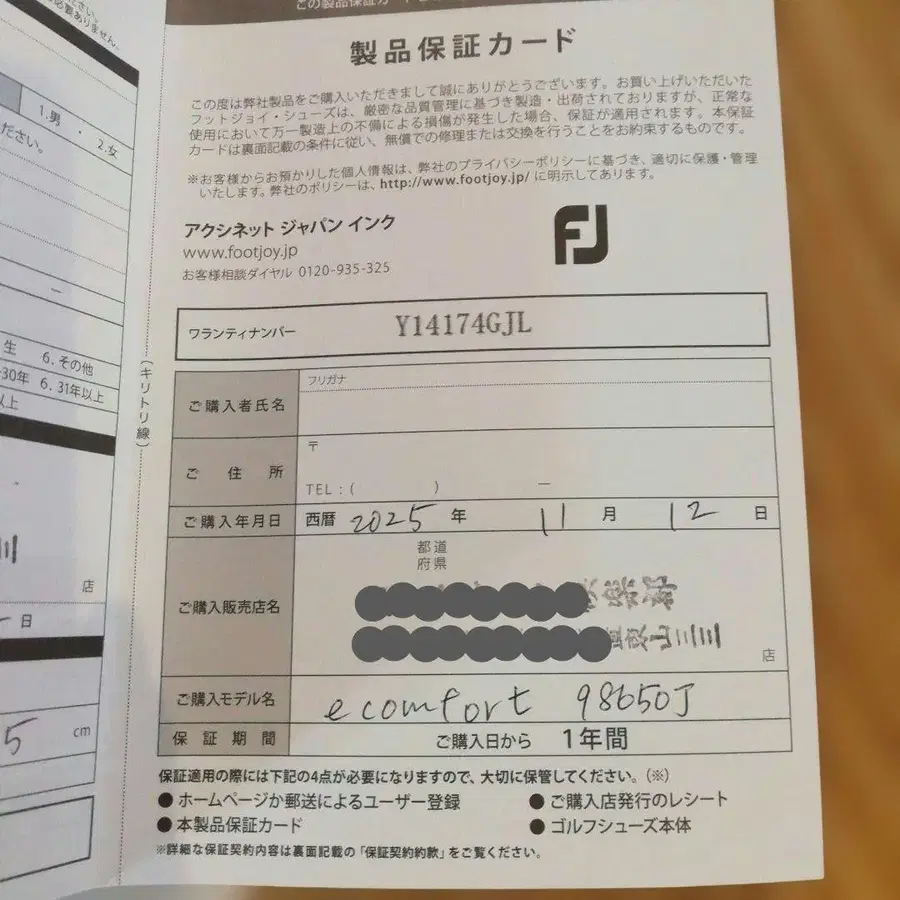 必要ありません。
1.男 ・ 2.女
ださい。
生 6.その他
30年 6.31年以上
以上
店
日
5 cm
(キリトリ線)
この製品保証カード
製品保証カード
この度は弊社製品をご購入いただきまして誠にありがとうございます。お買い上げいただいた
フットジョイ・シューズは、厳密な品質管理に基づき製造・出荷されておりますが、正常な
使用において万一製造上の不備による損傷が発生した場合、保証が適用されます。本保証
カードは裏面記載の条件に従い、無償での修理または交換を行うことをお約束するものです。
※お客様からお預かりした個人情報は、弊社のプライバシーポリシーに基づき、適切に保護・管理
いたします。弊社のポリシーは、http://www.footjoy.jp/ に明示してあります。
アクシネット ジャパン インク
www.footjoy.jp
お客様相談ダイヤル 0120-935-325
FJ
ワランティナンバー Y14174GJL
フリガナ
ご購入者氏名
〒
ご住所
TEL:( ) ―
ご購入年月日 西暦 2025 年 11 月 12 日
都道
府県
ご購入販売店名
店
ご購入モデル名 ecomfort 98650J
保証期間 ご購入日から 1年間
保証適用の際には下記の4点が必要になりますので、大切に保管してください。(※)
●ホームページか郵送によるユーザー登録 ●ご購入店発行のレシート
●本製品保証カード ●ゴルフシューズ本体
※詳細な保証契約内容は裏面記載の「保証契約約款」をご覧ください。